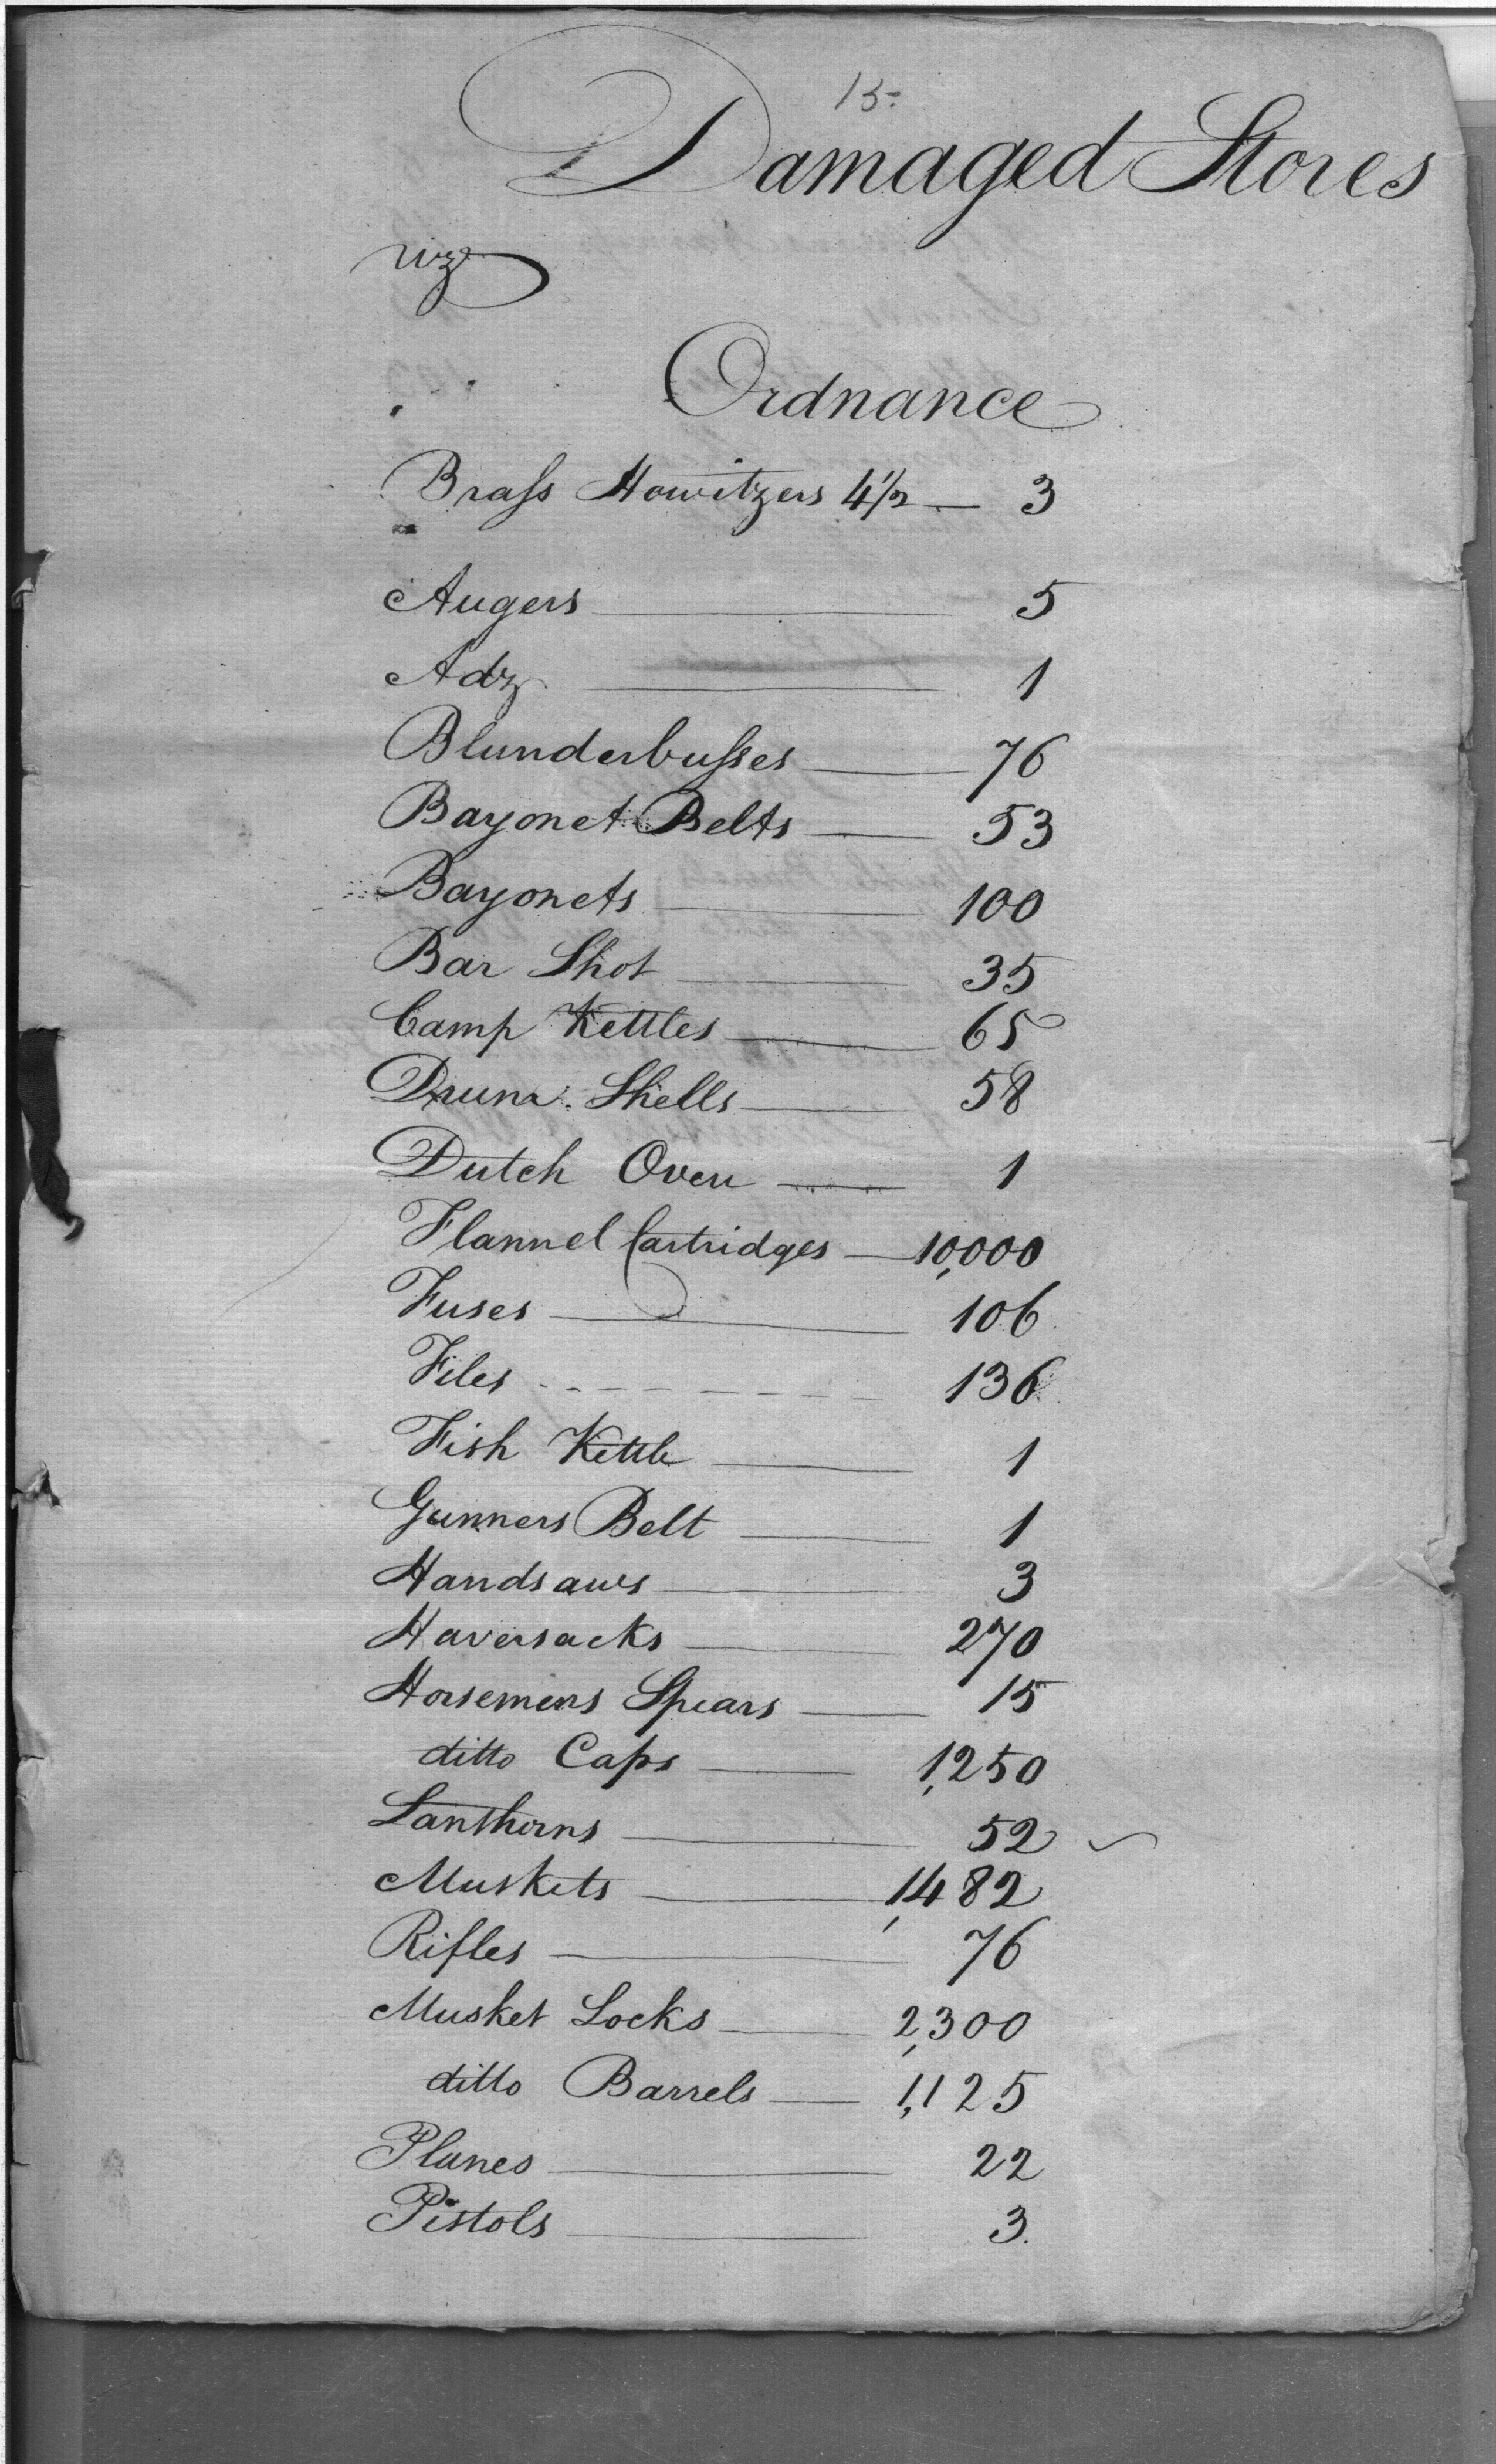 15.
Damaged Stores
viz
Ordnance
Brass Howitzers 4 1/2 — 3
Augers — 5
Adz — 1
Blunderbusses — 76
Bayonet Belts — 53
Bayonets — 100
Bar Shot — 35
Camp Kettles — 65
Drum Shells — 58
Dutch Oven — 1
Flannel Cartridges — 10,000
Fuses — 106
Files - - - - - - - - 136
Fish Kettle — 1
Gunners Belt — 1
Handsaws — 3
Haversacks — 270
Horsemens Spears — 15
ditto Caps — 1,250
Lanthorns — 52
Muskets — 1,482
Rifles — 76
Musket Locks — 2,300
ditto Barrels — 1,125
Planes — 22
Pistols — 3.